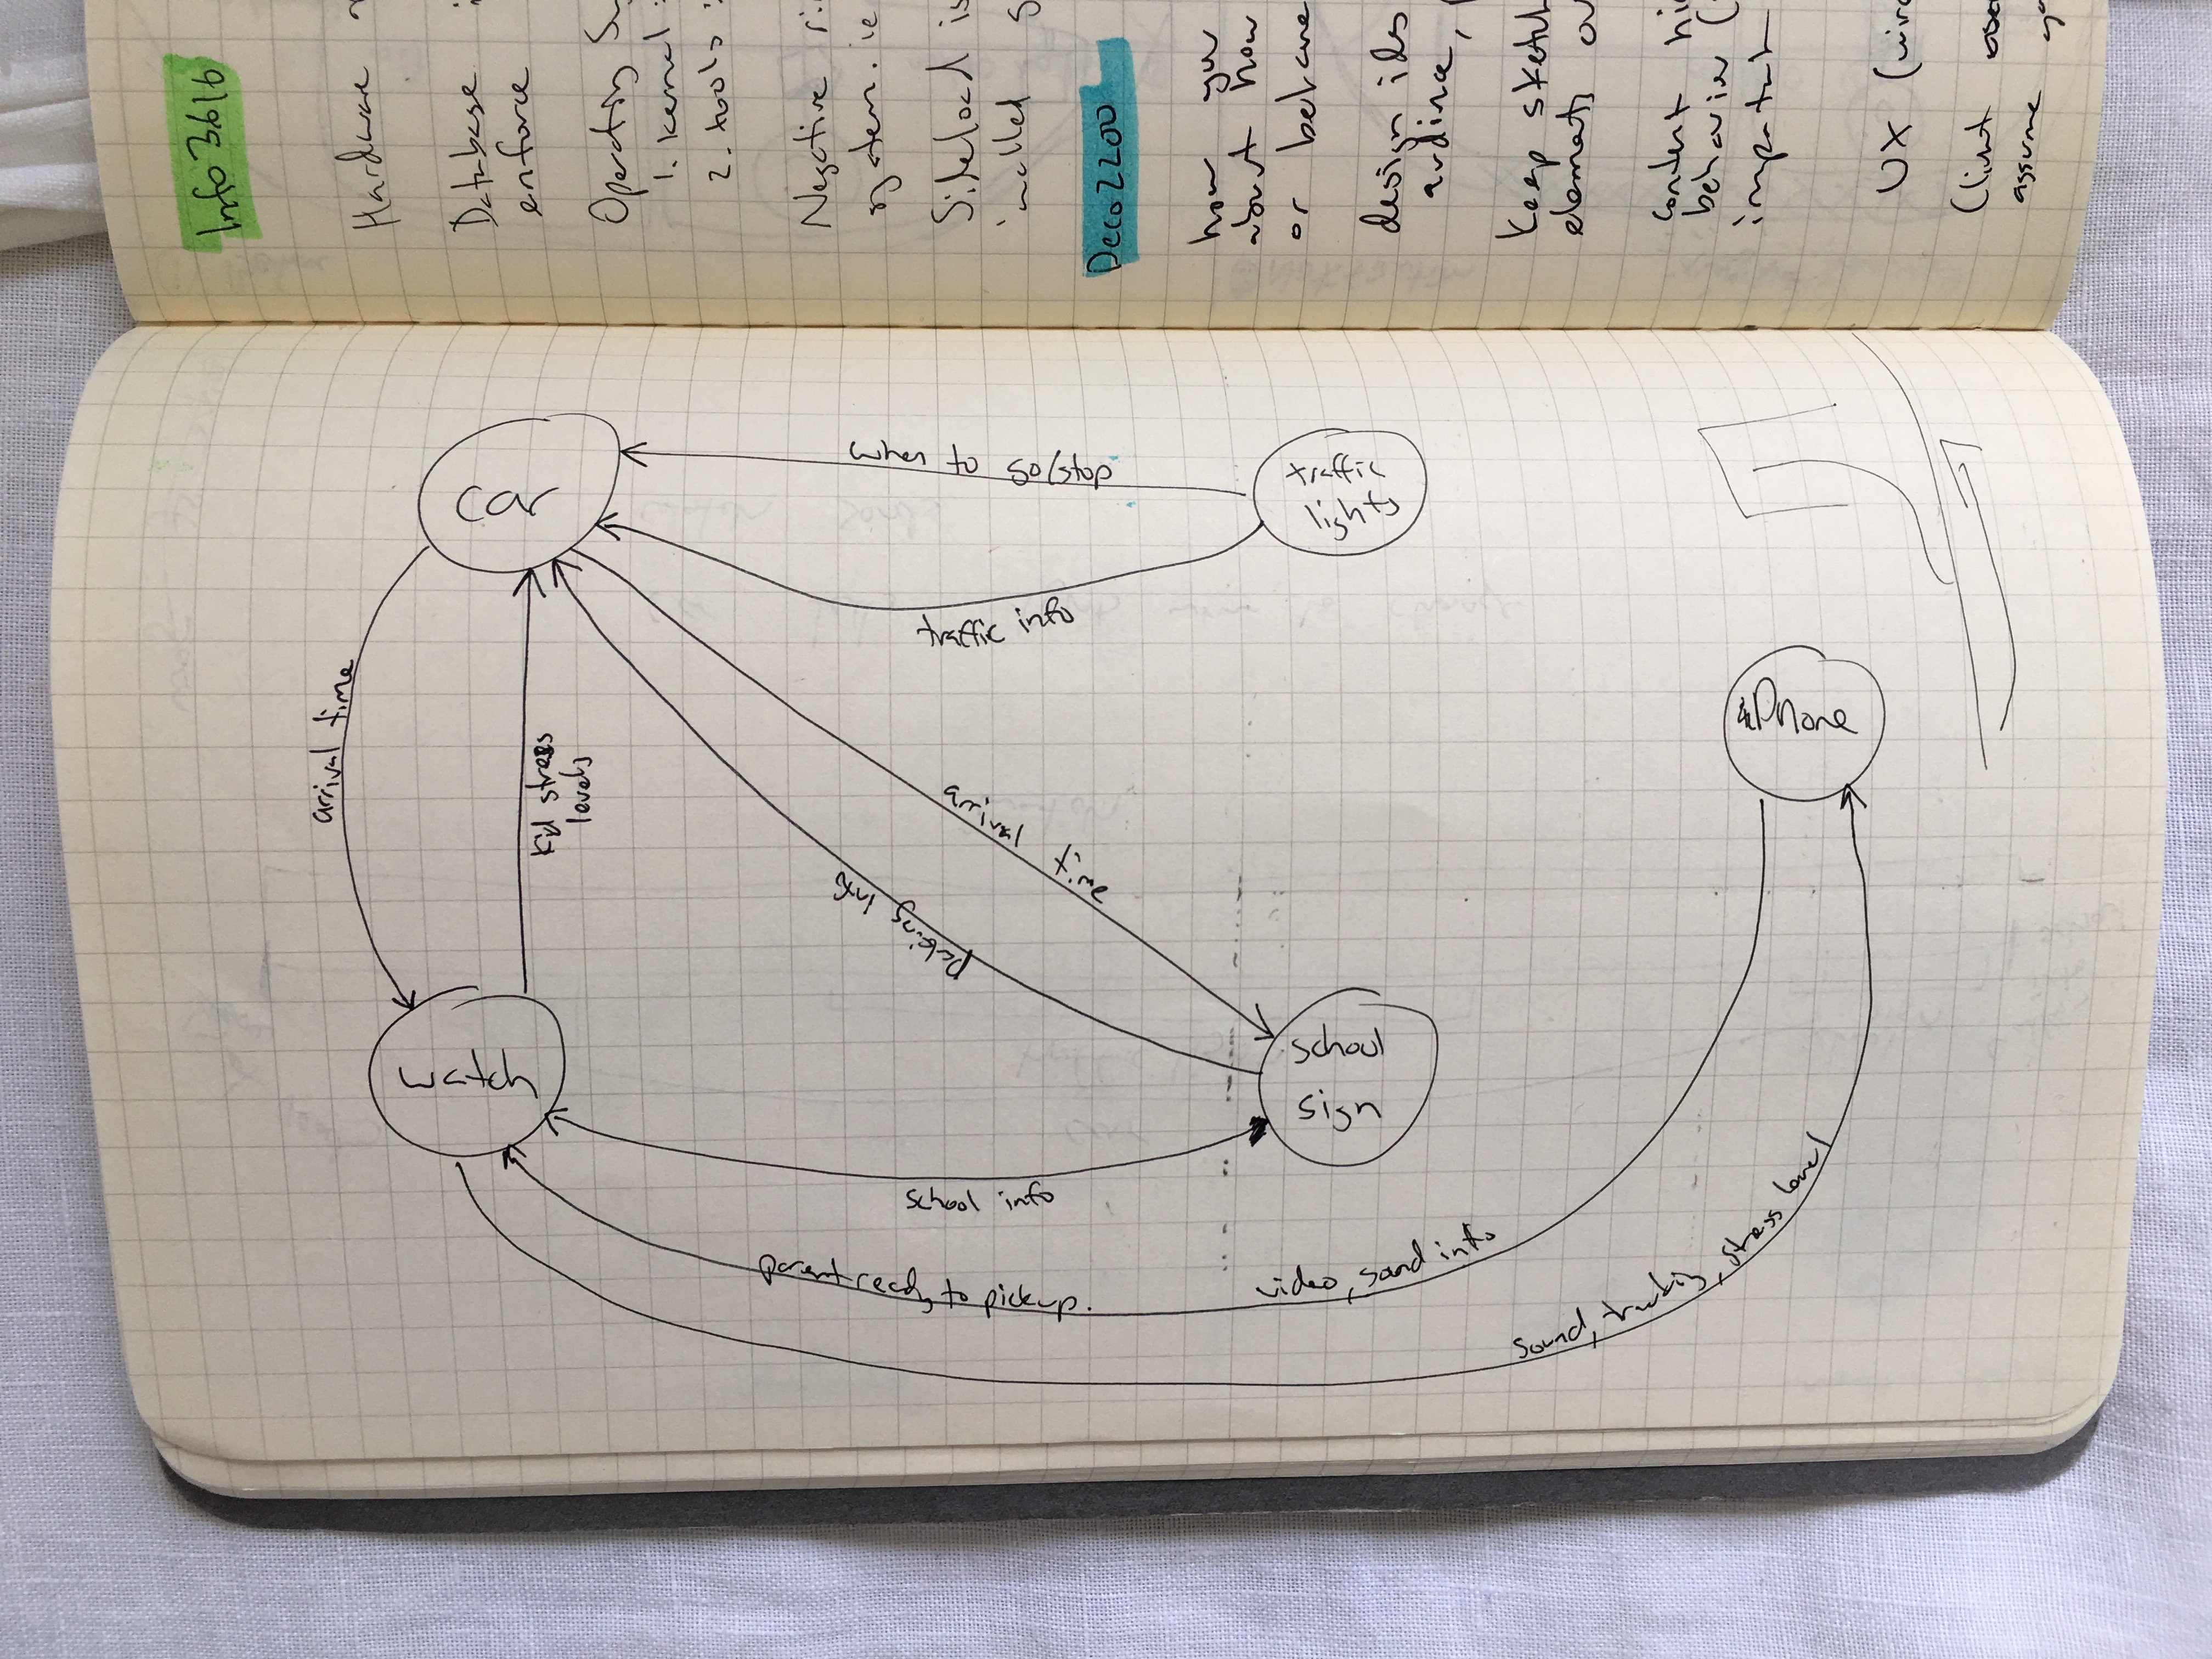 Info3616
Hardware
Database
enforce
Operating
1. kernel
2. tools
Negative
system. ie
Siteload is
Deco2200
how you
about how
or
design
audince,
Keep sketch
elements
content
behavior
important
UX
Client
assume
car
when to go/stop
traffic
lights
traffic info
Phone
arrival time
kid stress
levels
arrival time
parking info
watch
school
sign
school info
parent ready to pickup.
video, sound info
sound, tracking, stress level